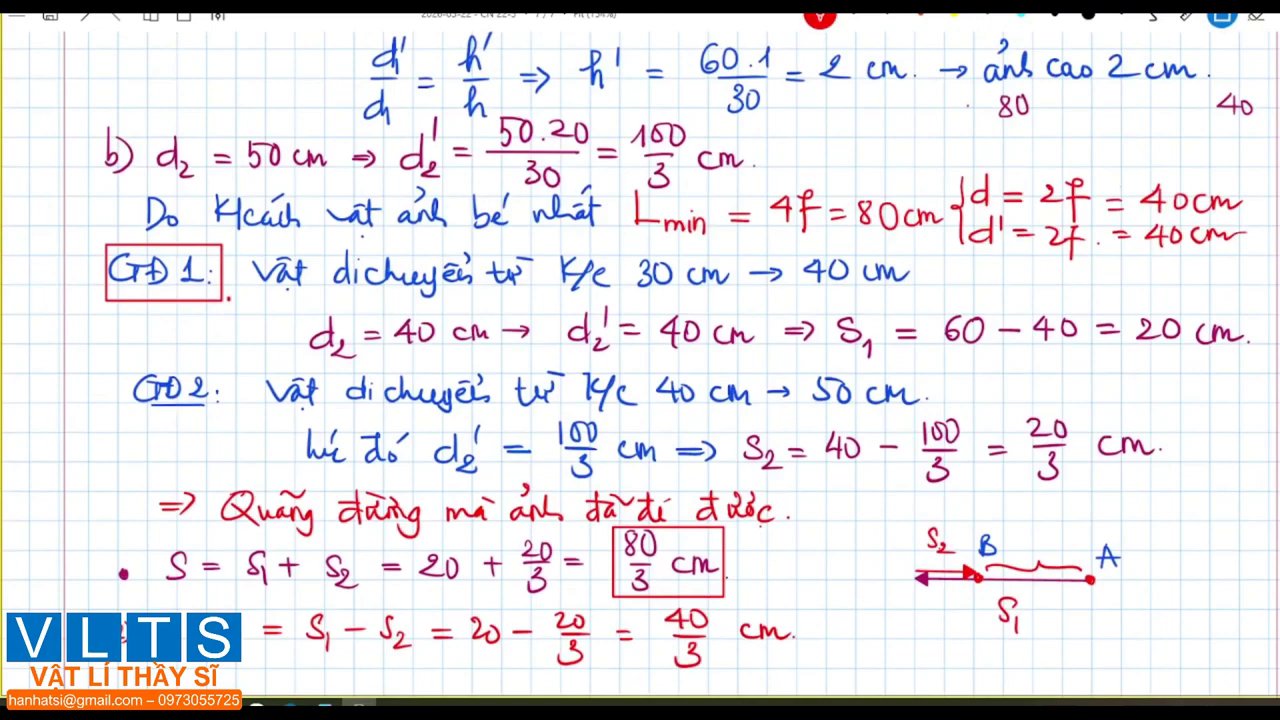 d'/d = h'/h ⟹ h' = 60.1/30 = 2 cm. → ảnh cao 2 cm.
80 40
b) d₂ = 50 cm ⟹ d₂' = 50.20/30 = 100/3 cm.
Do K/cách vật ảnh bé nhất L min = 4f = 80 cm { d = 2f = 40 cm
d' = 2f. = 40 cm
GĐ 1: Vật di chuyển từ K/c 30 cm → 40 cm
d₂ = 40 cm → d₂' = 40 cm ⟹ S₁ = 60 - 40 = 20 cm.
GĐ 2: Vật di chuyển từ K/c 40 cm → 50 cm.
lúc đó d₂' = 100/3 cm ⟹ S₂ = 40 - 100/3 = 20/3 cm.
⟹ Quãng đường mà ảnh đã đi được.
• S = S₁ + S₂ = 20 + 20/3 = 80/3 cm
S₂ B A
S₁
= S₁ - S₂ = 20 - 20/3 = 40/3 cm.
VLTS
VẬT LÍ THẦY SĨ
hanhatsi@gmail.com – 0973055725